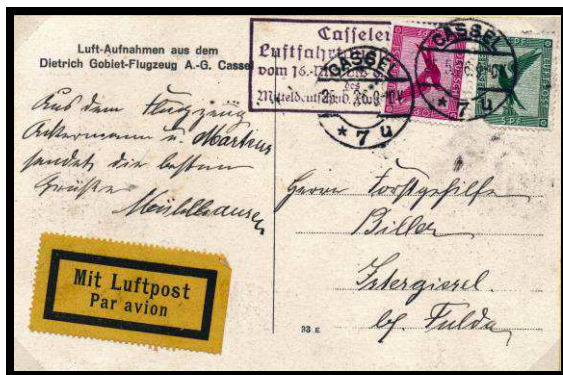 Luft-Aufnahmen aus dem
Dietrich Gobiet-Flugzeug A.-G. Cassel
Casseler
Luftfahrt
vom 16.
des
CASSEL
* 7 u
CASSEL
* 7 u
LUFTPOST
Aus dem Flugzeug
Ackermann u. Markus
sendet die besten
Grüße
Mühlhausen
Herrn Forstgehilfe
Biller
Istergiesel
bei Fulda
Mit Luftpost
Par avion
93 E